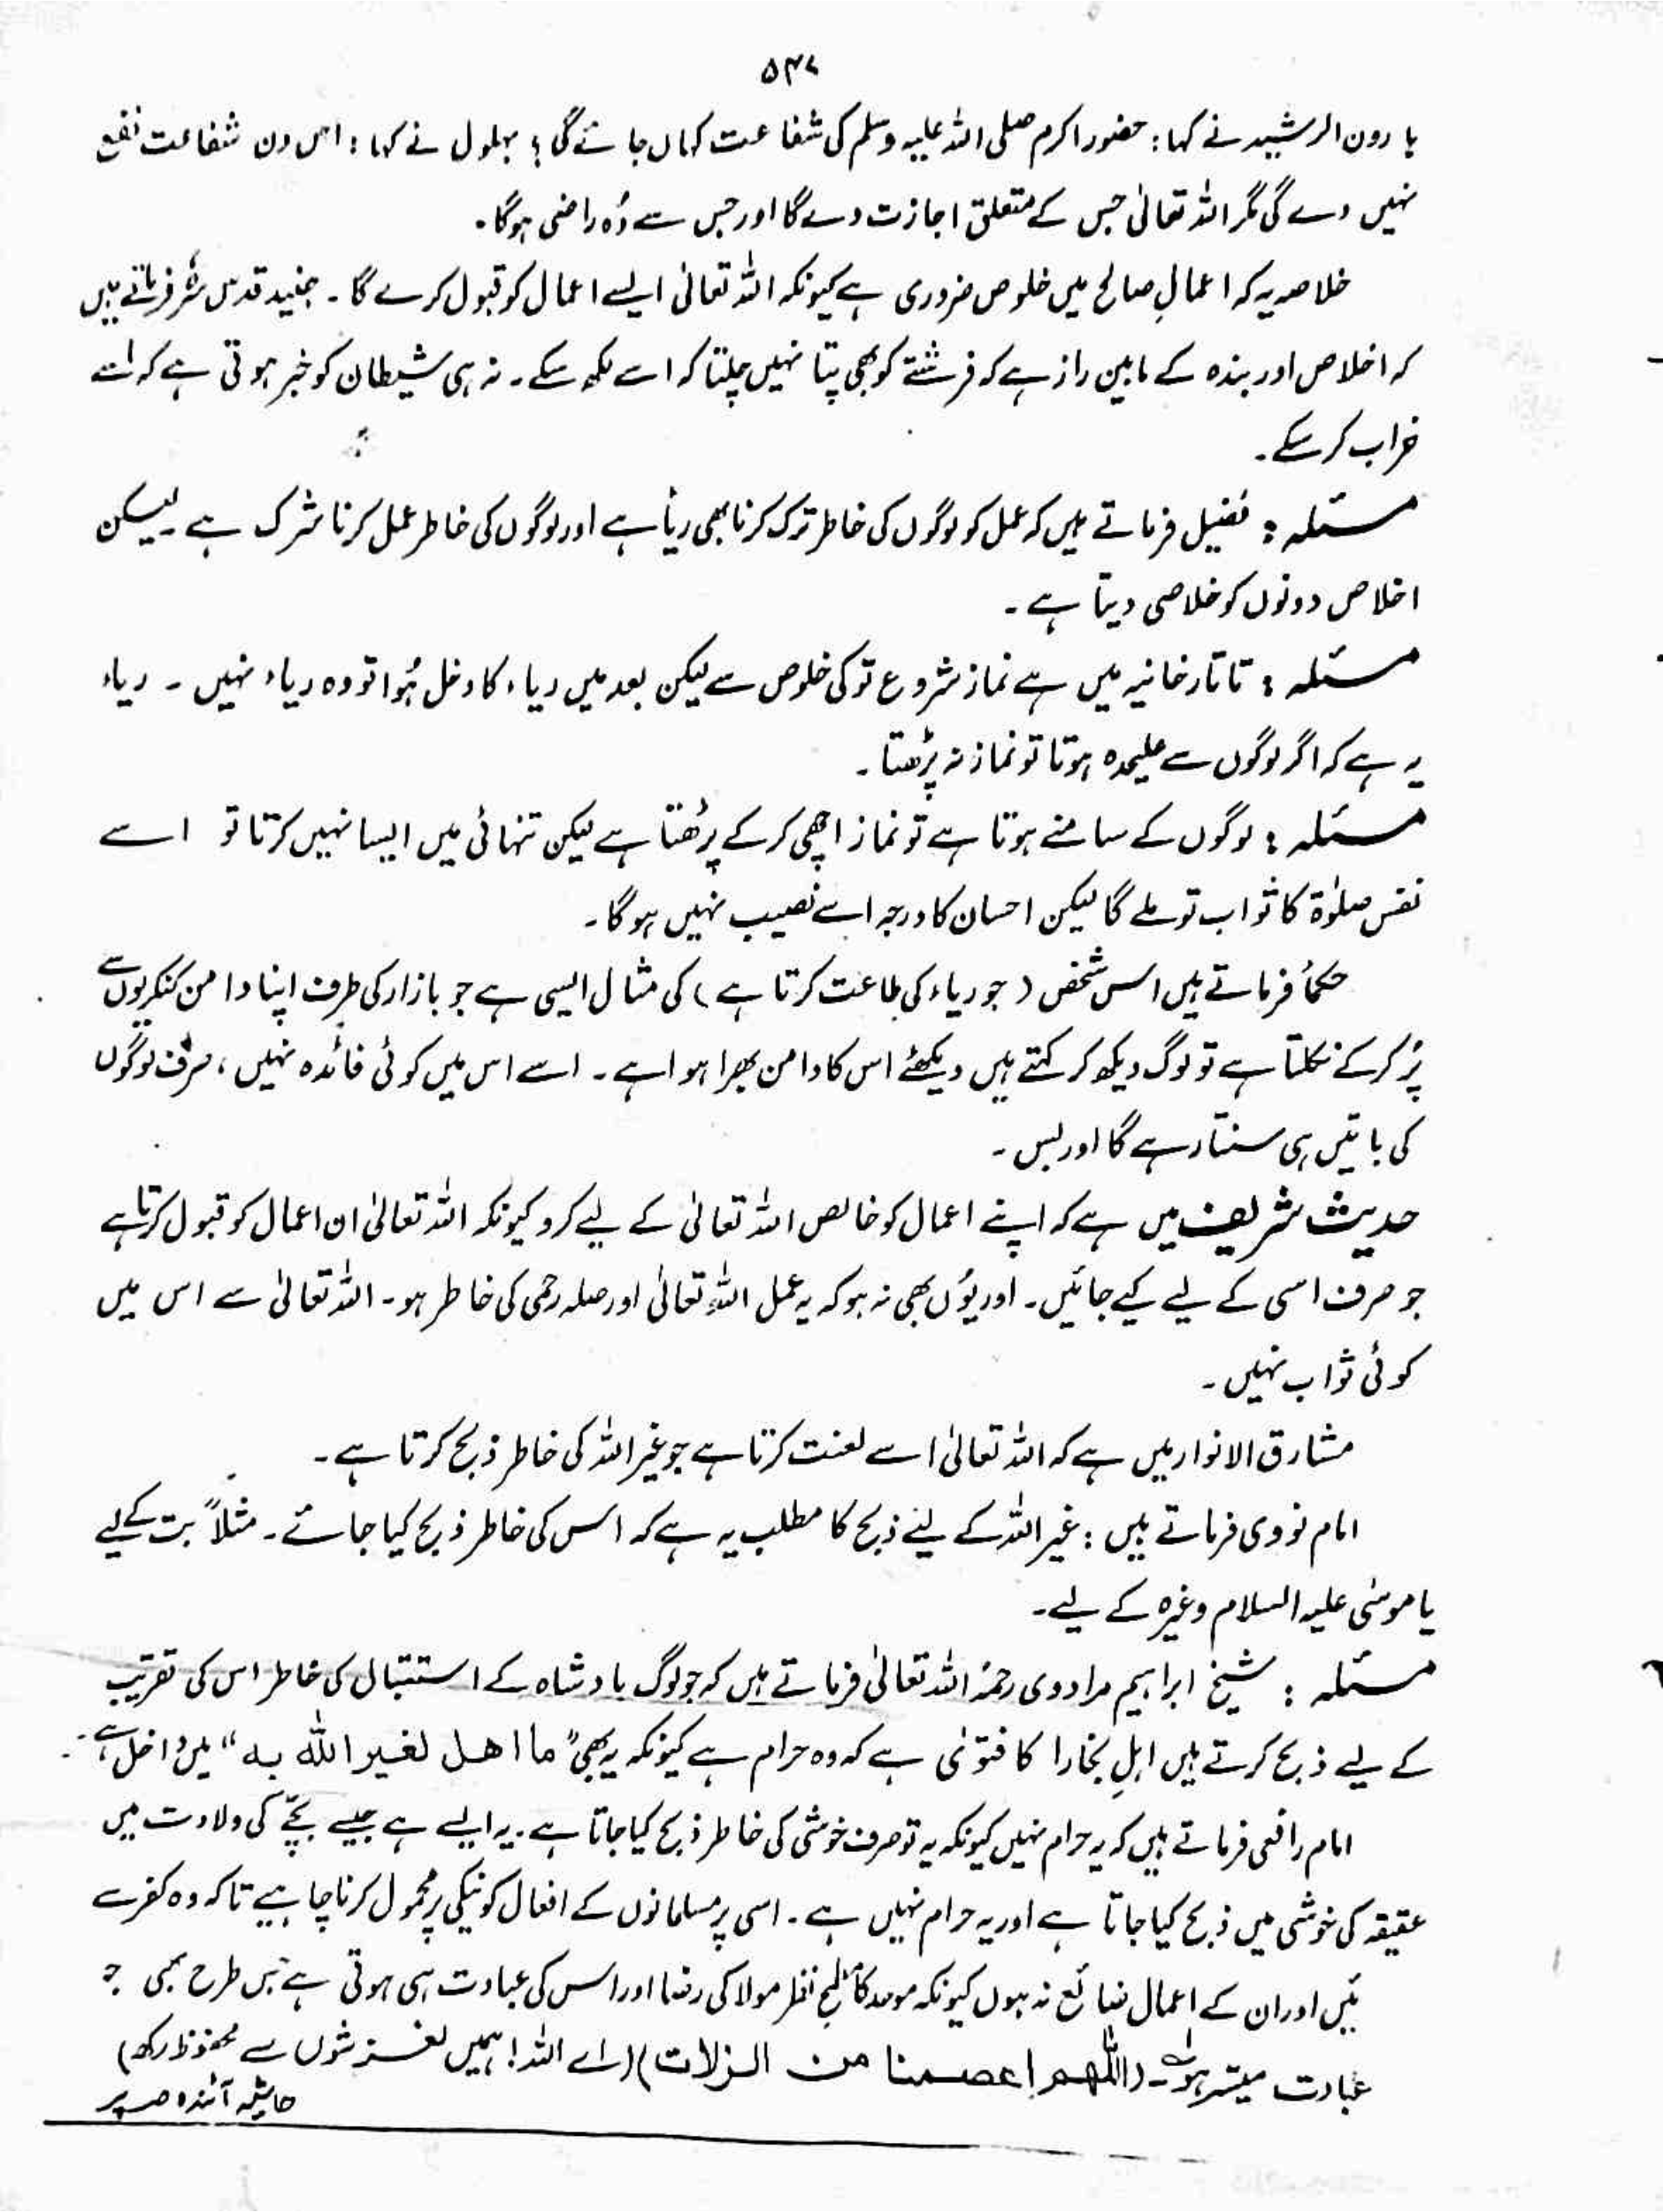 ۵۴۷
ہارون الرشید نے کہا: حضور اکرم صلی اللہ علیہ وسلم کی شفاعت کہاں جائے گی؟ بہلول نے کہا: اس دن شفاعت نفع
نہیں دے گی مگر اللہ تعالیٰ جس کے متعلق اجازت دے گا اور جس سے وُہ راضی ہوگا۔
خلاصہ یہ کہ اعمالِ صالح میں خلوص ضروری ہے کیونکہ اللہ تعالیٰ ایسے اعمال کو قبول کرے گا۔ جنید قدس سرہٗ فرماتے ہیں
کہ اخلاص اور بندہ کے مابین راز ہے کہ فرشتے کو بھی پتا نہیں چلتا کہ اسے لکھ سکے۔ نہ ہی شیطان کو خبر ہوتی ہے کہ اسے
خراب کر سکے۔
مسئلہ: فضیل فرماتے ہیں کہ عمل کو لوگوں کی خاطر ترک کرنا بھی ریأ ہے اور لوگوں کی خاطر عمل کرنا شرک ہے۔ لیکن
اخلاص دونوں کو خلاصی دیتا ہے۔
مسئلہ: تاتارخانیہ میں ہے نماز شروع تو کی خلوص سے لیکن بعد میں ریاء کا دخل ہُوا تو وہ ریاء نہیں۔ ریاء
یہ ہے کہ اگر لوگوں سے علیحدہ ہوتا تو نماز نہ پڑھتا۔
مسئلہ: لوگوں کے سامنے ہوتا ہے تو نماز اچھی کر کے پڑھتا ہے لیکن تنہائی میں ایسا نہیں کرتا تو اسے
نفس صلوٰۃ کا ثواب تو ملے گا لیکن احسان کا درجہ اسے نصیب نہیں ہوگا۔
حکمأ فرماتے ہیں اس شخص (جو ریاء کی طاعت کرتا ہے) کی مثال ایسی ہے جو بازار کی طرف اپنا دامن کنکریوں سے
پُر کر کے نکلتا ہے تو لوگ دیکھ کر کہتے ہیں دیکھئے اس کا دامن بھرا ہوا ہے۔ اسے اس میں کوئی فائدہ نہیں، صرف لوگوں
کی باتیں ہی سنتا رہے گا اور بس۔
حدیث شریف میں ہے کہ اپنے اعمال کو خالص اللہ تعالیٰ کے لیے کرو کیونکہ اللہ تعالیٰ ان اعمال کو قبول کرتا ہے
جو صرف اسی کے لیے کیے جائیں۔ اور یوُں بھی نہ ہو کہ یہ عمل اللہ تعالیٰ اور صلہ رحمی کی خاطر ہو۔ اللہ تعالیٰ سے اس میں
کوئی ثواب نہیں۔
مشارق الانوار میں ہے کہ اللہ تعالیٰ اسے لعنت کرتا ہے جو غیر اللہ کی خاطر ذبح کرتا ہے۔
امام نووی فرماتے ہیں: غیر اللہ کے لیے ذبح کا مطلب یہ ہے کہ اس کی خاطر ذبح کیا جائے۔ مثلاً بت کے لیے
یا موسٰی علیہ السلام وغیرہ کے لیے۔
مسئلہ: شیخ ابراہیم مرادوی رحمہ اللہ تعالیٰ فرماتے ہیں کہ جو لوگ بادشاہ کے استقبال کی خاطر اس کی تقریب
کے لیے ذبح کرتے ہیں اہلِ بخارا کا فتوٰی ہے کہ وہ حرام ہے کیونکہ یہ بھی "ما اھل لغیر اللہ بہ" میں داخل ہے۔
امام رافعی فرماتے ہیں کہ یہ حرام نہیں کیونکہ یہ تو صرف خوشی کی خاطر ذبح کیا جاتا ہے۔ یہ ایسے ہے جیسے بچّے کی ولادت میں
عقیقہ کی خوشی میں ذبح کیا جاتا ہے اور یہ حرام نہیں ہے۔ اسی پر مسلمانوں کے افعال کو نیکی پر محمول کرنا چاہیے تاکہ وہ کفر سے
بچیں اور ان کے اعمال ضائع نہ ہوں کیونکہ موحد کا مطمح نظر مولا کی رضا اور اس کی عبادت ہی ہوتی ہے جس طرح بھی
عبادت میسّر ہو۔ (اللّٰھم اعصمنا من الزلات) (اے اللہ! ہمیں لغزشوں سے محفوظ رکھ)
حاشیہ آئندہ صـ پر